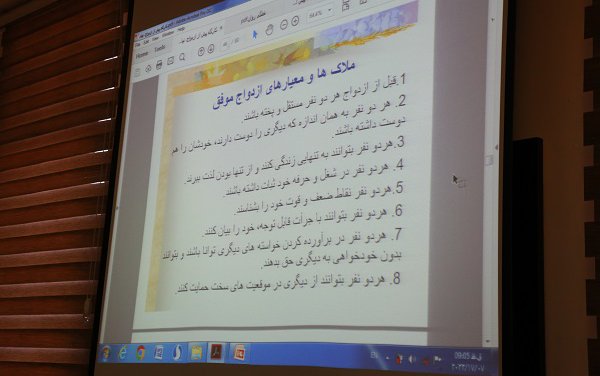 Home
Tools
54.4%
ملاک ها و معیارهای ازدواج موفق
1.قبل از ازدواج هر دو نفر مستقل و پخته باشند.
2. هر دو نفر به همان اندازه که دیگری را دوست دارند، خودشان را هم
دوست داشته باشند.
3.هردو نفر بتوانند به تنهایی زندگی کنند و از تنها بودن لذت ببرند.
4. هردو نفر در شغل و حرفه خود ثبات داشته باشند.
5.هردو نفر نقاط ضعف و قوت خود را بشناسند.
6. هردو نفر بتوانند با جرأت قابل توجه، خود را بیان کنند.
7. هردو نفر در برآورده کردن خواسته های دیگری توانا باشند و بتوانند
بدون خودخواهی به دیگری حق بدهند.
8. هردو نفر بتوانند از دیگری در موقعیت های سخت حمایت کنند.
EN